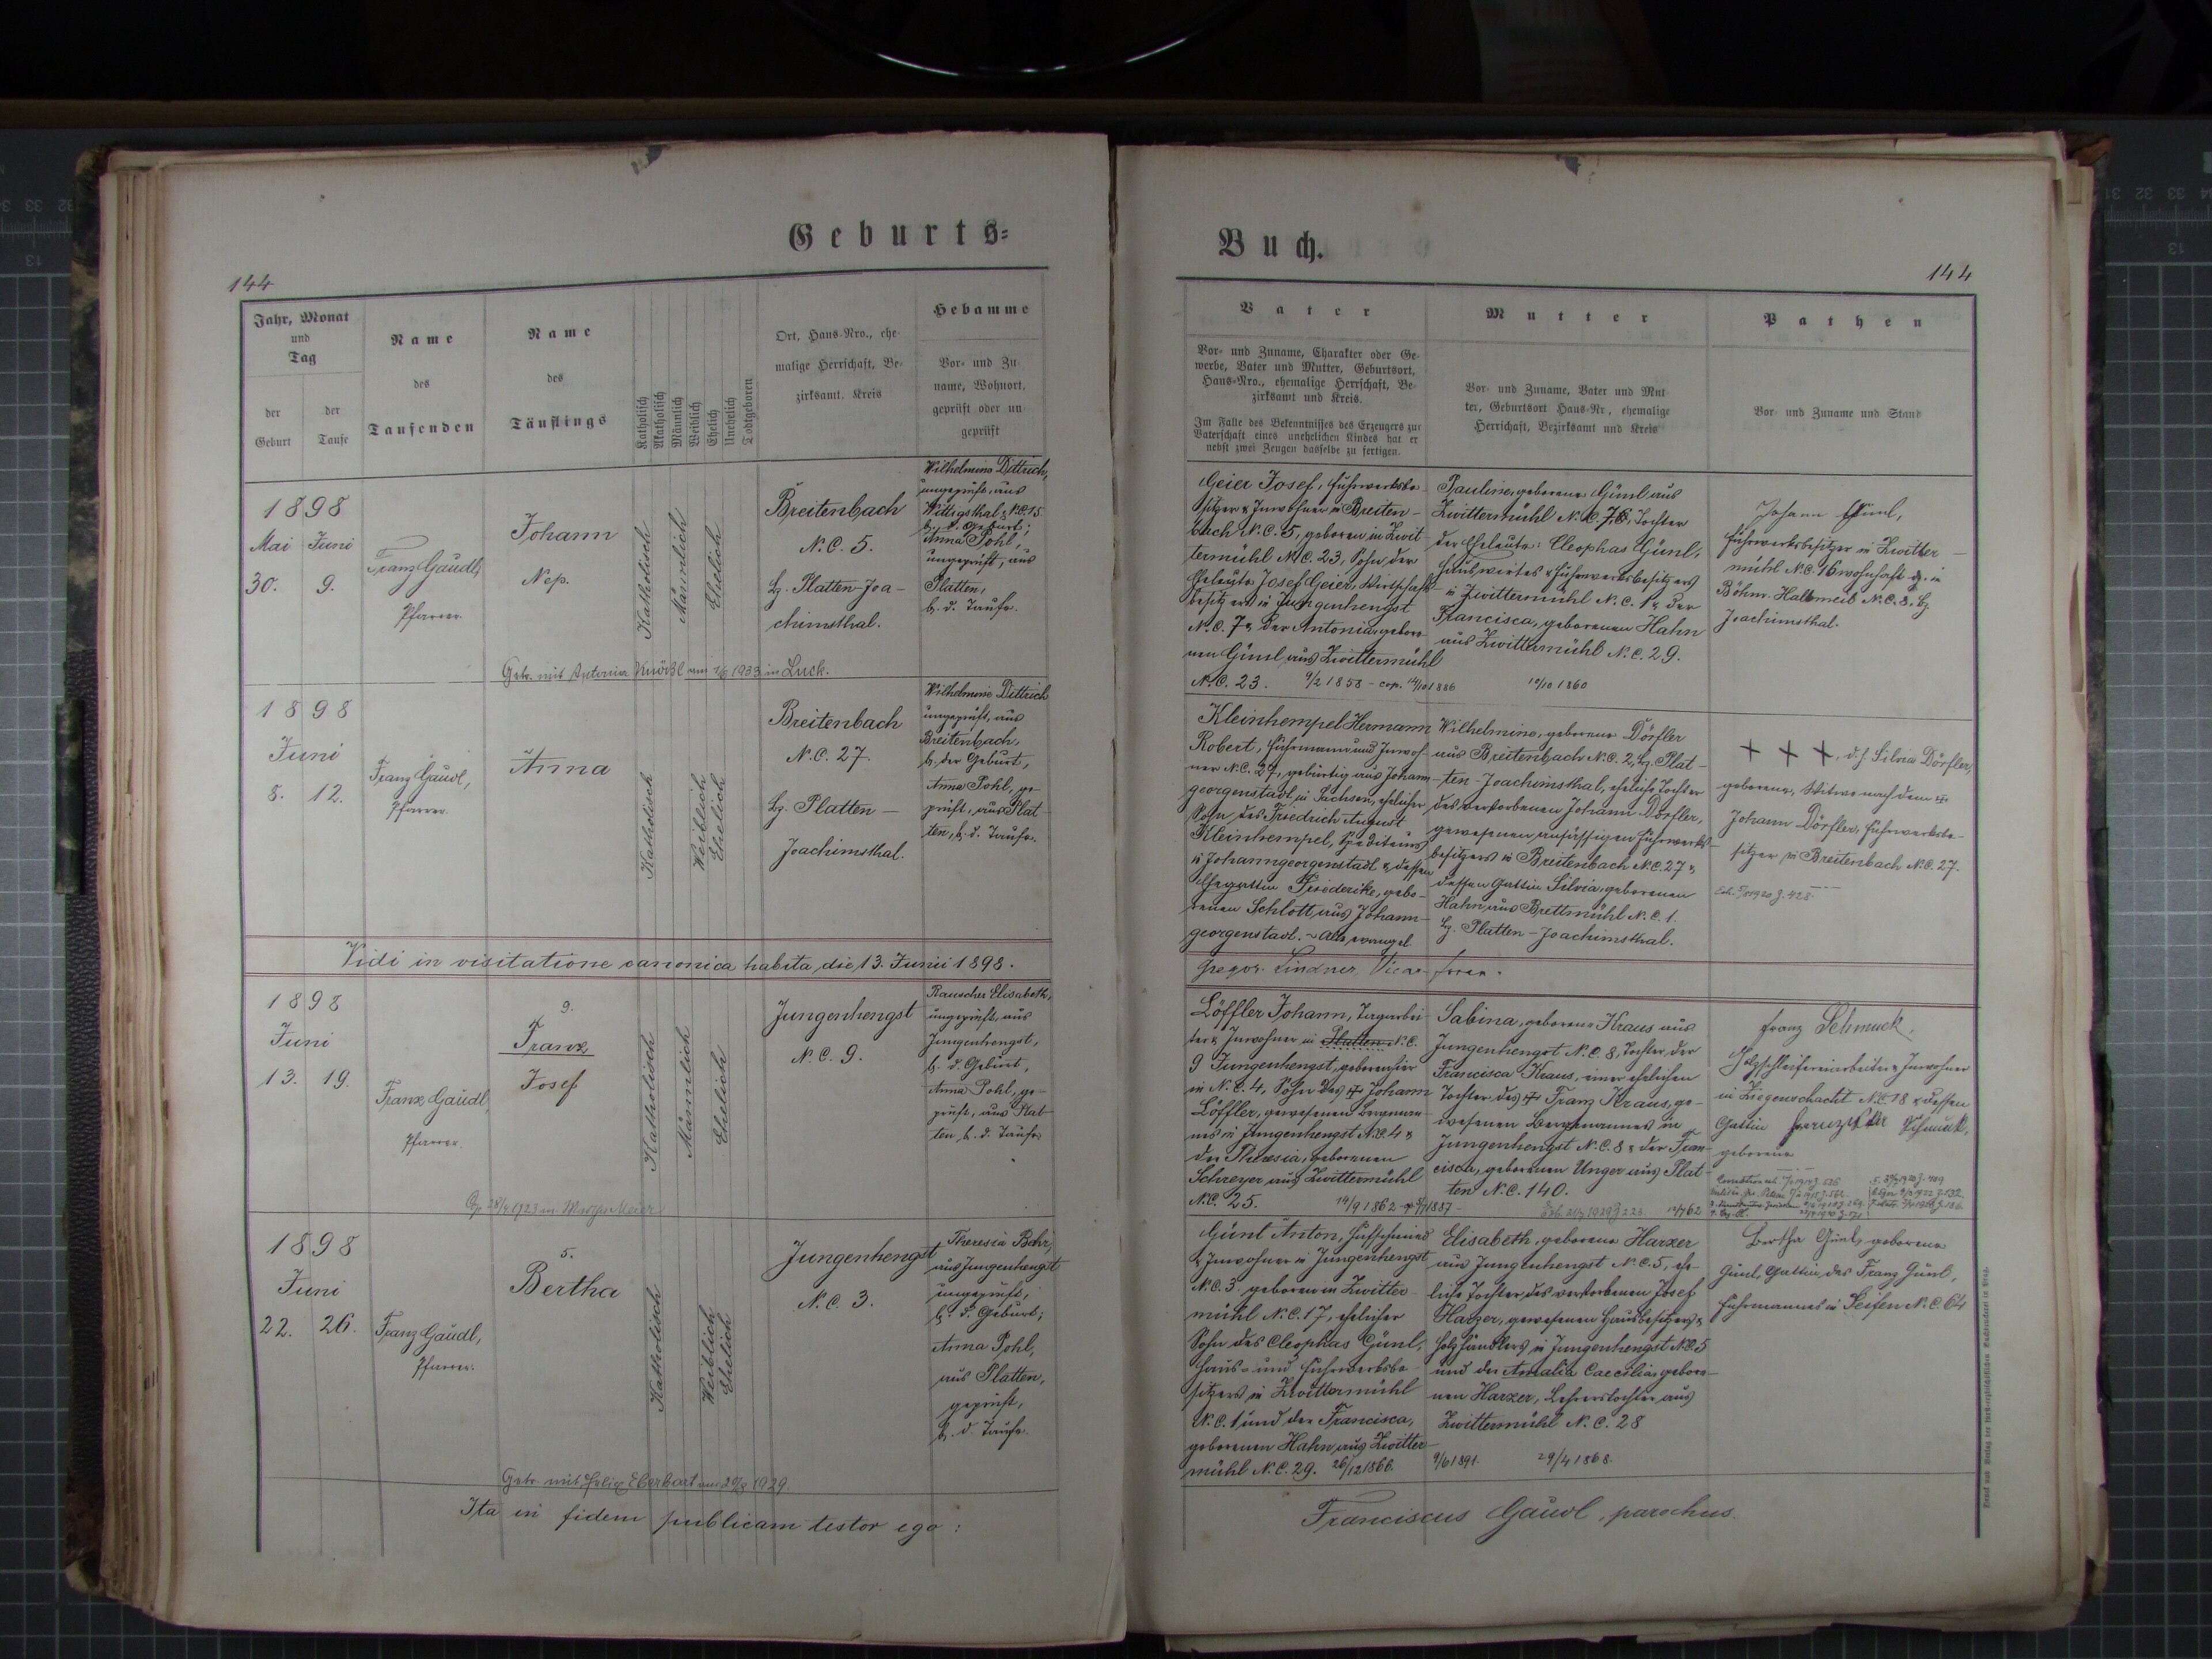 Geburts=
144
Jahr, Monat
und
Tag
der
Geburt
der
Taufe
Name
des
Taufenden
Name
des
Täuflings
Katholisch
Akatholisch
Männlich
Weiblich
Ehelich
Unehelich
Todtgeboren
Ort, Haus-Nro., ehe-
malige Herrschaft, Be-
zirksamt. Kreis
Hebamme
Vor- und Zu-
name, Wohnort,
geprüft oder un-
geprüft
1898
Mai Juni
30. 9.
Franz Gaudl,
Pfarrer.
Johann
Nep.
Katholisch
Männlich
Ehelich
Breitenbach
N.C. 5.
Bz. Platten-Joa-
chimsthal.
Wilhelmine Dittrich,
ungeprüft, aus
Wittigsthal N.C. 15
b. d. Geburt;
Anna Pohl,
ungeprüft, aus
Platten,
b. d. Taufe.
Getr. mit Antonia 1933 in Luck.
1898
Juni
8. 12.
Franz Gaudl,
Pfarrer.
Anna
Katholisch
Weiblich
Ehelich
Breitenbach
N.C. 27.
Bz. Platten-
Joachimsthal.
Wilhelmine Dittrich
ungeprüft, aus
Breitenbach,
b. der Geburt,
Anna Pohl, ge-
prüft, aus Plat-
ten, b. d. Taufe.
Vidi in visitatione canonica habita die 13. Junii 1898.
1898
Juni
13. 19.
Franz Gaudl,
Pfarrer.
9.
Franz
Josef
Katholisch
Männlich
Ehelich
Jungenhengst
N.C. 9.
Rauscher Elisabeth,
ungeprüft, aus
Jungenhengst,
b. d. Geburt,
Anna Pohl, ge-
prüft, aus Plat-
ten, b. d. Taufe.
1898
Juni
22. 26.
Franz Gaudl,
Pfarrer.
5.
Bertha
Katholisch
Weiblich
Ehelich
Jungenhengst
N.C. 3.
Theresia Behr,
aus Jungenhengst
ungeprüft,
b. d. Geburt;
Anna Pohl,
aus Platten,
geprüft,
b. d. Taufe.
Getr. mit Felix Eberhart am 1929.
Ita in fidem publicam testor ego:
Buch.
144
Vater
Vor- und Zuname, Charakter oder Ge-
werbe, Vater und Mutter, Geburtsort,
Haus-Nro., ehemalige Herrschaft, Be-
zirksamt und Kreis.
Im Falle des Bekenntnisses des Erzeugers zur
Vaterschaft eines unehelichen Kindes hat er
nebst zwei Zeugen dasselbe zu fertigen.
Mutter
Vor- und Zuname, Vater und Mut-
ter, Geburtsort Haus-Nr, ehemalige
Herrschaft, Bezirksamt und Kreis
Pathen
Vor- und Zuname und Stand
Geier Josef, Fuhrwerksbe-
sitzer & Inwohner in Breiten-
bach N.C. 5, geboren in Zwit-
termühl N.C. 23, Sohn der
Eheleute Josef Geier, Wirtschafts-
besitzers in Jungenhengst
N.C. 7 & der Antonia, gebore-
nen Günl aus Zwittermühl
N.C. 23. 9/2 1858 - cop. 14/10 1886
Pauline, geborene Günl aus
Zwittermühl N.C. 76, Tochter
der Eheleute: Cleophas Günl,
Hauswirtes & Fuhrwerksbesitzers
in Zwittermühl N.C. 1 & der
Francisca, geborenen Hahn
aus Zwittermühl N.C. 29.
10/10 1860
Johann Günl,
Fuhrwerksbesitzer in Zwitter-
mühl N.C. 16 wohnhaft in
Böhm. Halbmeil N.C. 8. Bz.
Joachimsthal.
Kleinhempel Hermann
Robert, Fuhrmann und Inwoh-
ner N.C. 27, gebürtig aus Johann-
georgenstadt in Sachsen, ehelicher
Sohn des Friedrich August
Kleinhempel, Spediteurs
in Johanngeorgenstadt & dessen
Ehegattin Friederike, gebo-
renen Schlott aus Johann-
georgenstadt. ~ Alle evangel
Wilhelmine, geborene Dörfler
aus Breitenbach N.C. 2, Bz. Plat-
ten-Joachimsthal, eheliche Tochter
des verstorbenen Johann Dörfler,
gewesenen ansässigen Fuhrwerks-
besitzers in Breitenbach N.C. 27 &
dessen Gattin Silvia, geborenen
Hahn aus Brettmühl N.C. 1.
Bz. Platten-Joachimsthal.
+++, d. h. Silvia Dörfler,
geborene, Witwe nach dem +
Johann Dörfler, Fuhrwerksbe-
sitzer in Breitenbach N.C. 27.
Gregor. Lindner, Vicar foran.
Löffler Johann, Tagarbei-
ter & Inwohner in Platten N.C.
9 Jungenhengst, geboren hier
in N.C. 4, Sohn des + Johann
Löffler, gewesenen Bergman-
nes in Jungenhengst N.C. 4 &
der Theresia, geborenen
Schreyer aus Zwittermühl
N.C. 25. 14/9 1862
Sabina, geborene Kraus aus
Jungenhengst N.C. 8, Tochter der
Francisca Kraus, einer ehelichen
Tochter des + Franz Kraus, ge-
wesenen Bergmannes in
Jungenhengst N.C. 8 & der Fran-
cisca, geborenen Unger aus Plat-
ten N.C. 140.
Franz Schmuck,
Holzschleifereiarbeiter & Inwohner
in Ziegenschacht N.C. 18 & dessen
Gattin Franziska Schmuck,
geborene
Günl Anton, Hufschmied
& Inwohner in Jungenhengst
N.C. 3. geboren in Zwitter-
mühl N.C. 17, ehelicher
Sohn des Cleophas Günl,
Haus- und Fuhrwerksbe-
sitzers in Zwittermühl
N.C. 1 und der Francisca,
geborenen Hahn aus Zwitter-
mühl N.C. 29. 26/12 1866.
Elisabeth, geborene Harzer
aus Jungenhengst N.C. 5, ehe-
liche Tochter des verstorbenen Josef
Harzer, gewesenen Hausbesitzers &
Holzhändlers in Jungenhengst N.C. 5
und der Amalia Caecilia, gebore-
nen Harzer, Lehrerstochter aus
Zwittermühl N.C. 28
9/6 1891. 29/4 1868.
Bertha Günl, geborene
Günl, Gattin des Franz Günl,
Fuhrmannes in Seifen N.C. 64
Franciscus Gaudl, parochus.